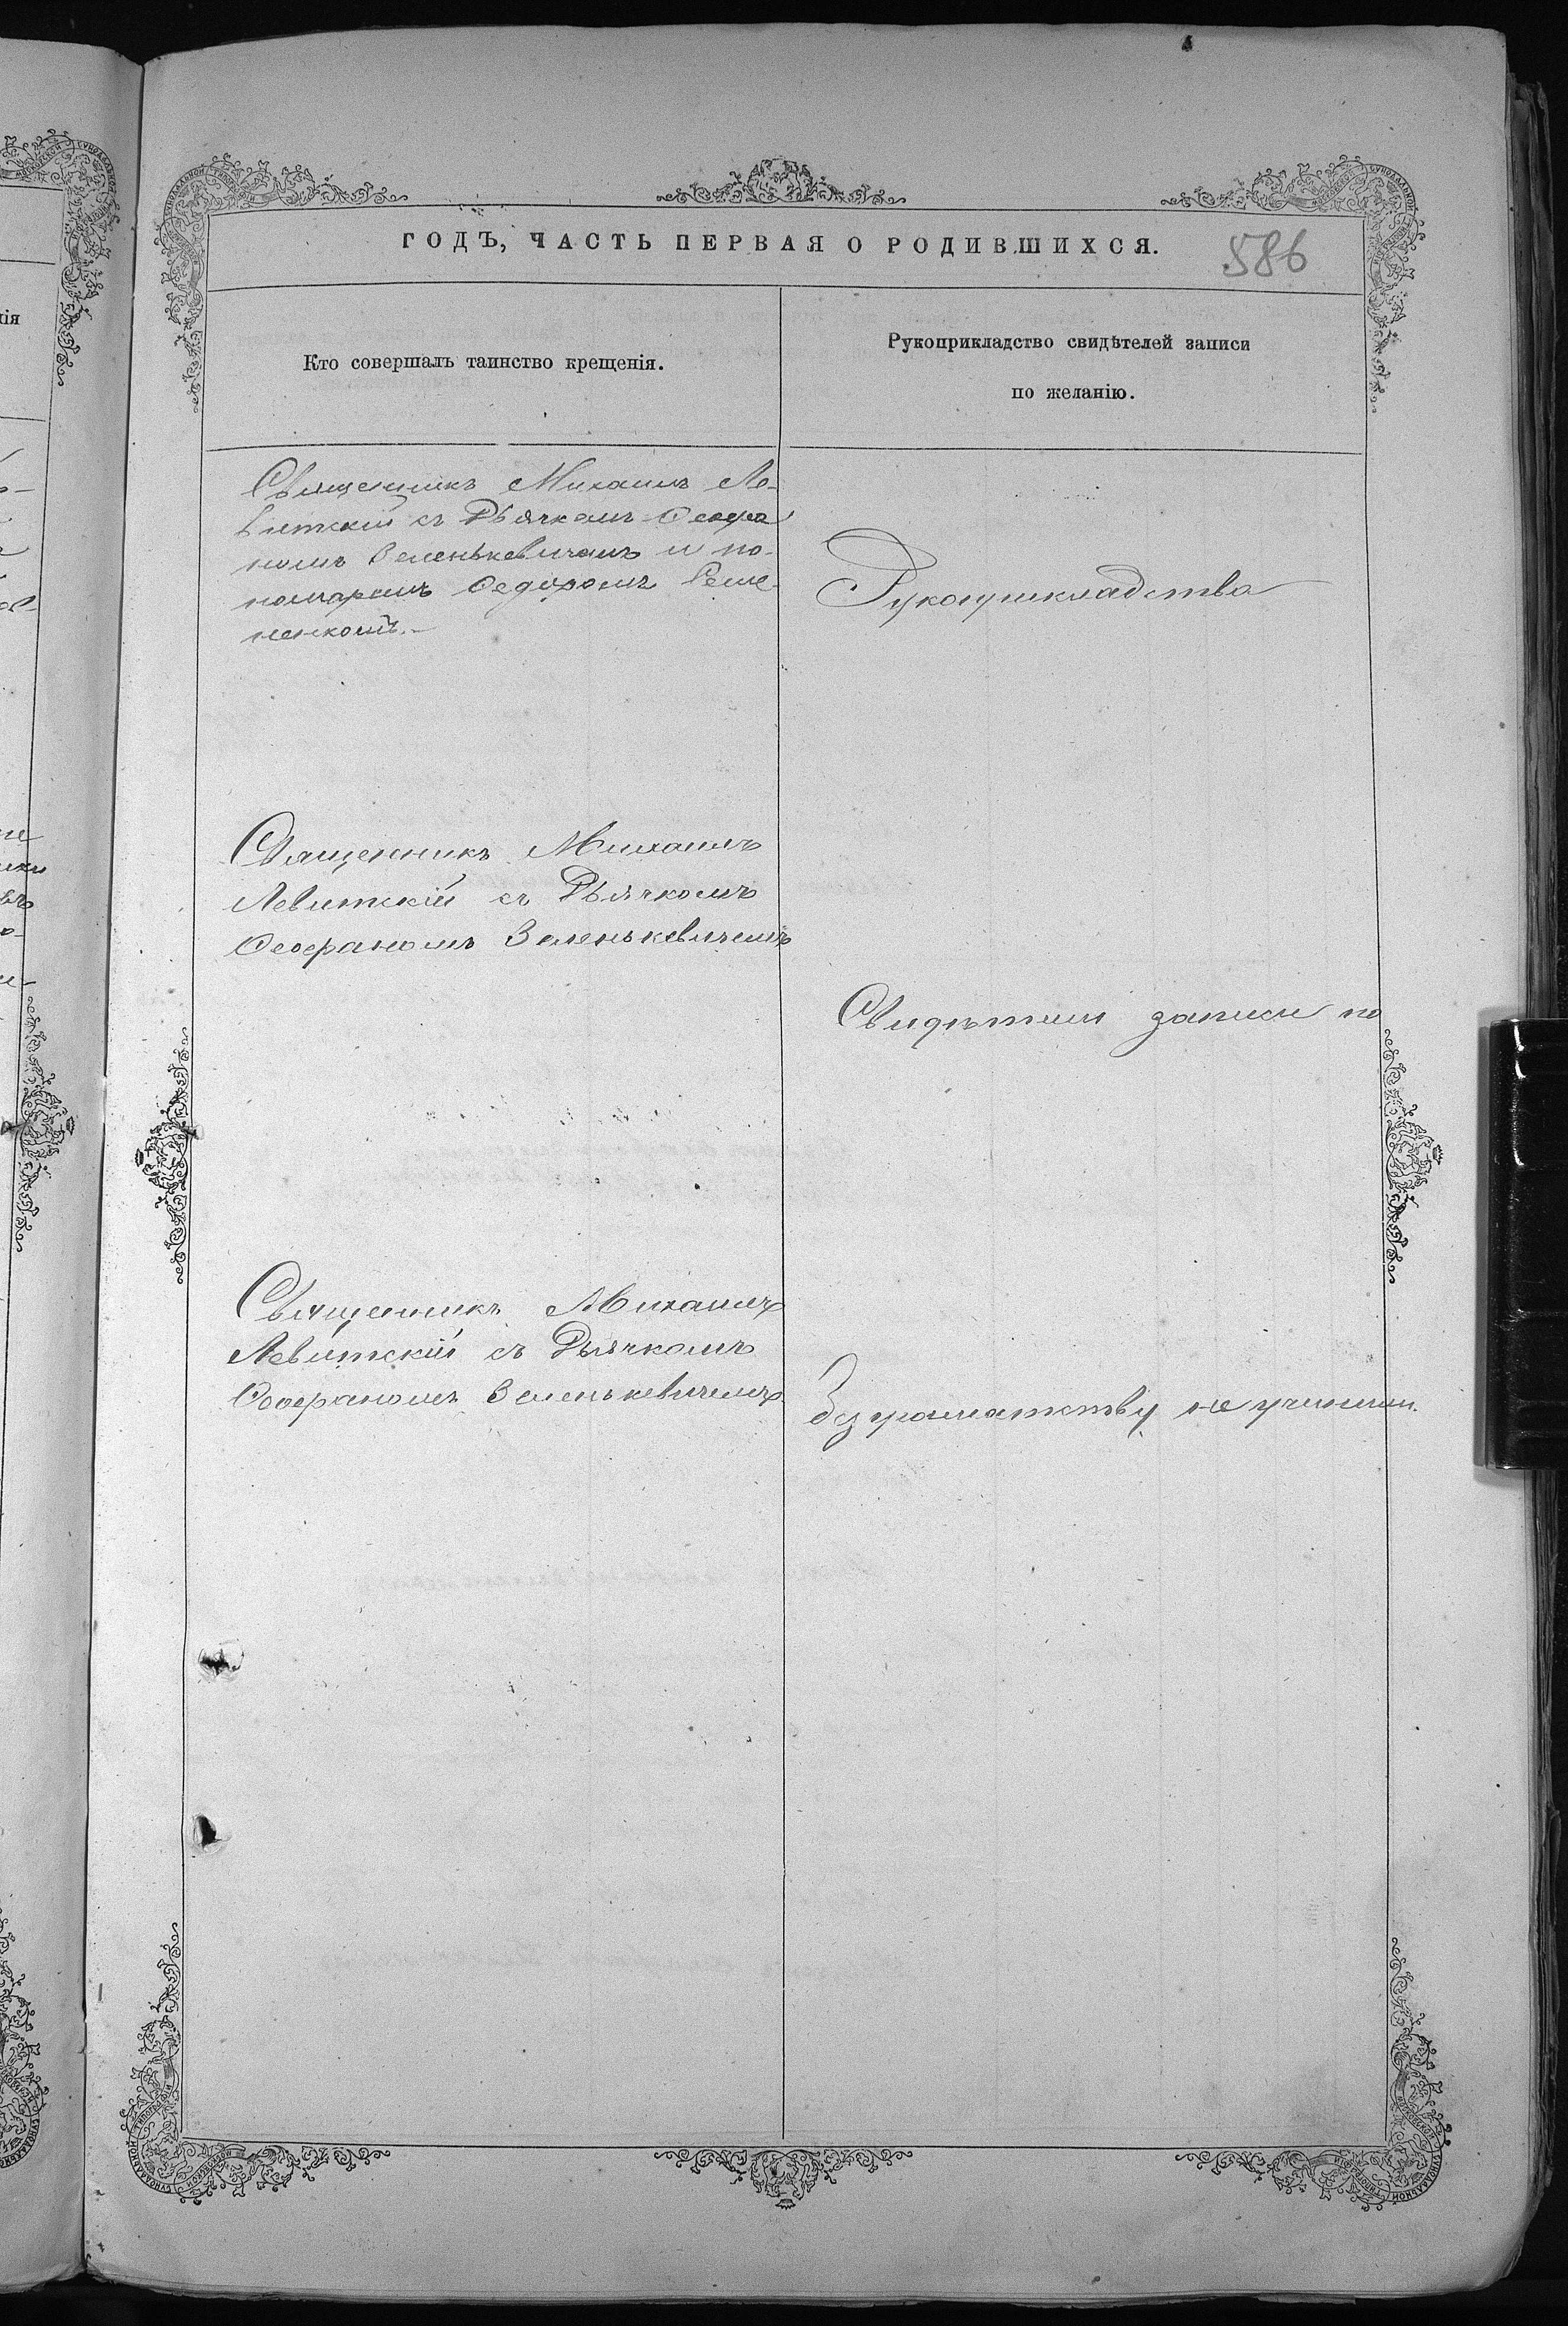 ГОДЪ, ЧАСТЬ ПЕРВАЯ О РОДИВШИХСЯ.
586
Кто совершалъ таинство крещенія.
Рукоприкладство свидѣтелей записи
по желанію.
Священникъ Михаилъ Ле-
витскій съ Дьячкомъ Феофа
номъ Зеленькевичемъ и по-
номаремъ Федоромъ
Рукоприкладства
Священникъ Михаилъ
Левитскій съ Дьячкомъ
Феофаномъ Зеленькевичемъ
Свидѣтели записи по
Священникъ Михаилъ
Левитскій съ Дьячкомъ
Феофаномъ Зеленькевичемъ
безграматству не учинили.